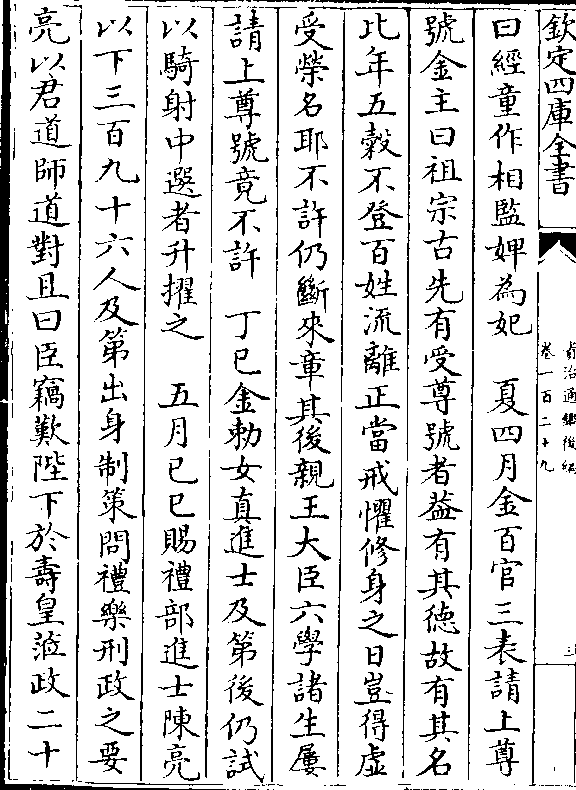 欽定四庫全書
資治通鑑後編
卷一百二十九
三
曰經童作相監婢為妃　夏四月金百官三表請上尊
號金主曰祖宗古先有受尊號者蓋有其德故有其名
比年五穀不登百姓流離正當戒懼修身之日豈得虛
受榮名耶不許仍斷來章其後親王大臣六學諸生屢
請上尊號竟不許　丁巳金勅女真進士及第後仍試
以騎射中選者升擢之　五月己巳賜禮部進士陳亮
以下三百九十六人及第出身制策問禮樂刑政之要
亮以君道師道對且曰臣竊歎陛下於壽皇蒞政二十